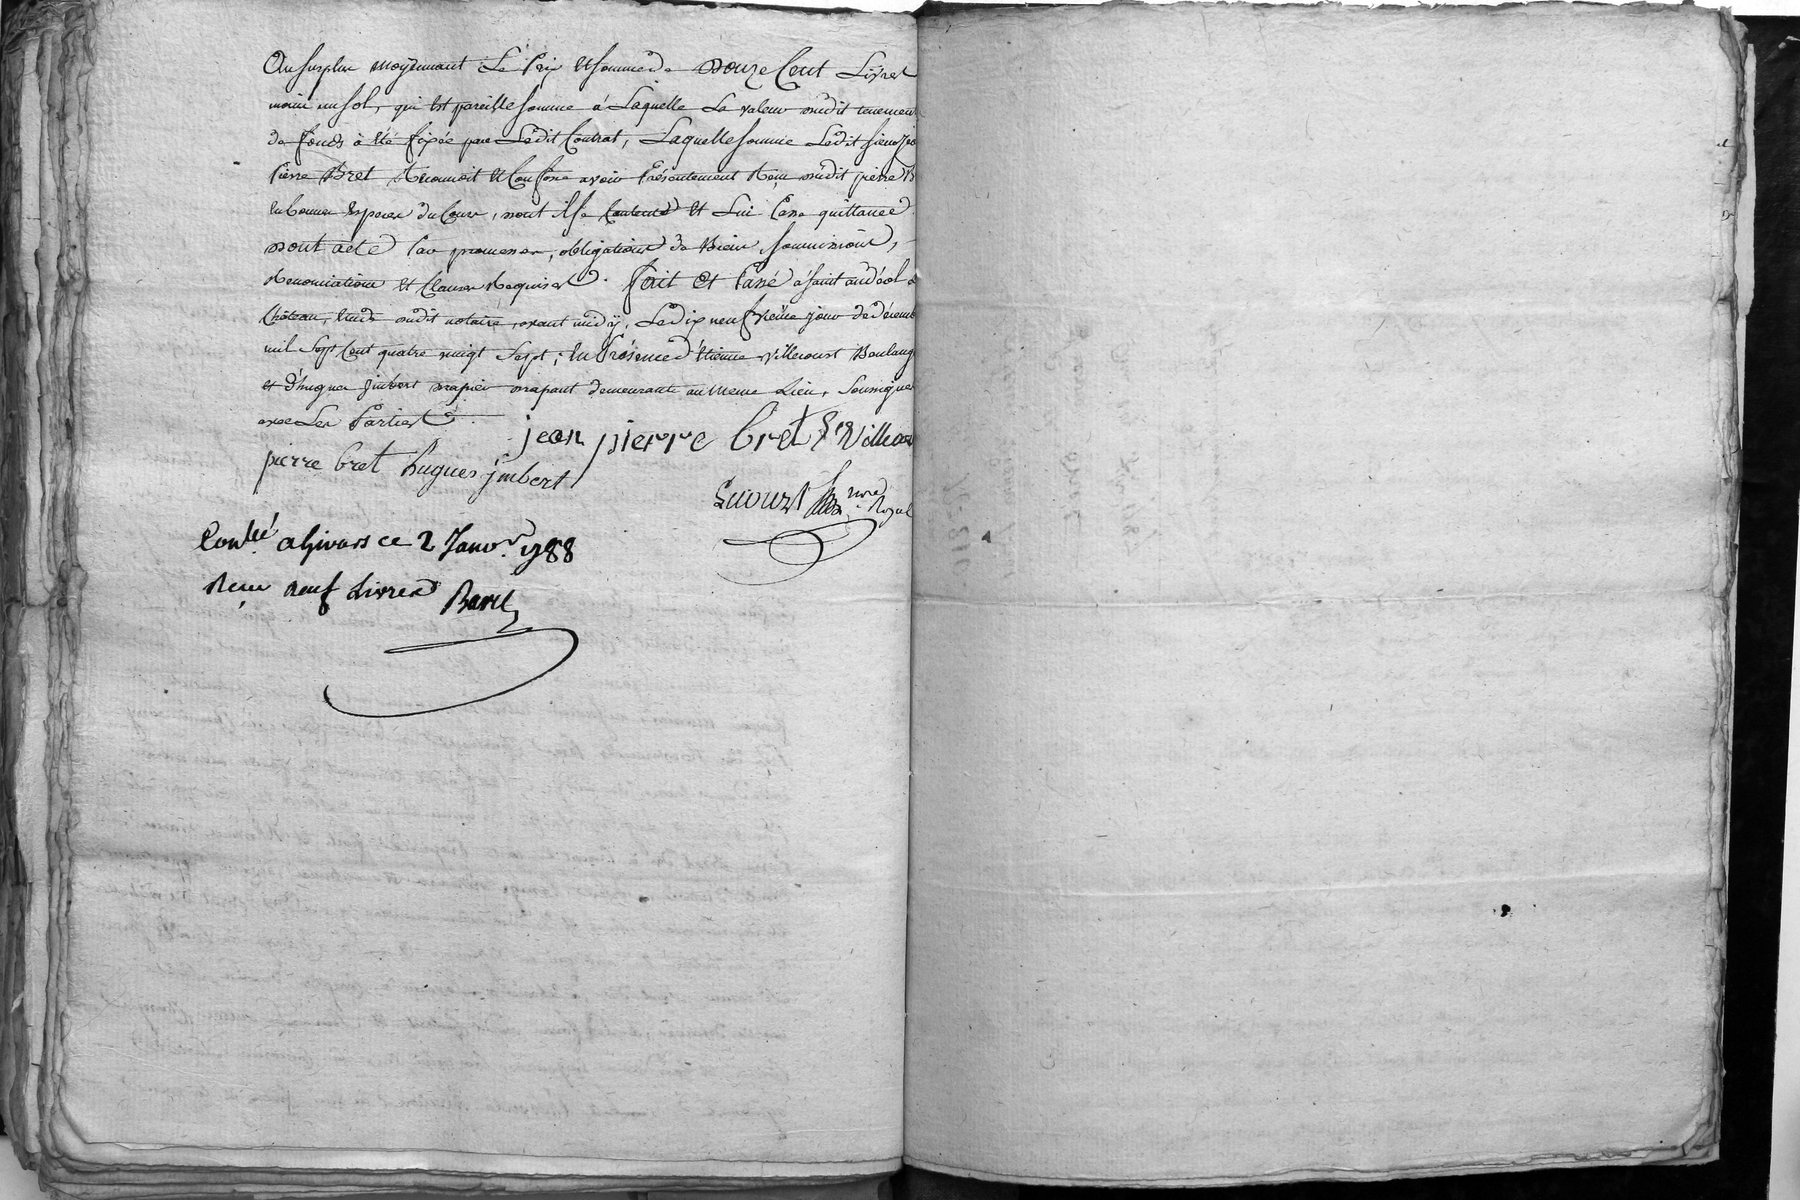 Au surplus moyennant Le Prix et somme de Douze Cent Livres
moins un sol, qui est pareille somme à Laquelle La valeur dudit tenement
de fonds à été fixée par Ledit Contrat, Laquelle somme Ledit sieur jea
Pierre Bret Reconnoit et Confesse avoir Présentement Reçu dudit pierre B
en bonnes Especes du Cours, dont il se Contente et Lui Passe quittance
dont acte Par promesses, obligations de Biens soumissions,
Renonciations et Clauses Requises. fait et Passé à saint andéol le
Château, Etude dudit notaire, avant midÿ, Le dix neufvieme jour de décemb
mil Sept Cent quatre vingt Sept; en Présence d'Etienne Villecourt Boulang
et d'hugues jmbert drapier drapant demeurants au meme Lieu, Soussignés
avec Les Parties
jean pierre bret
pierre bret hugues jmbert
nre Royal
Conllé a Givors ce 2 Janvr. 1788
Reçu neuf Livres